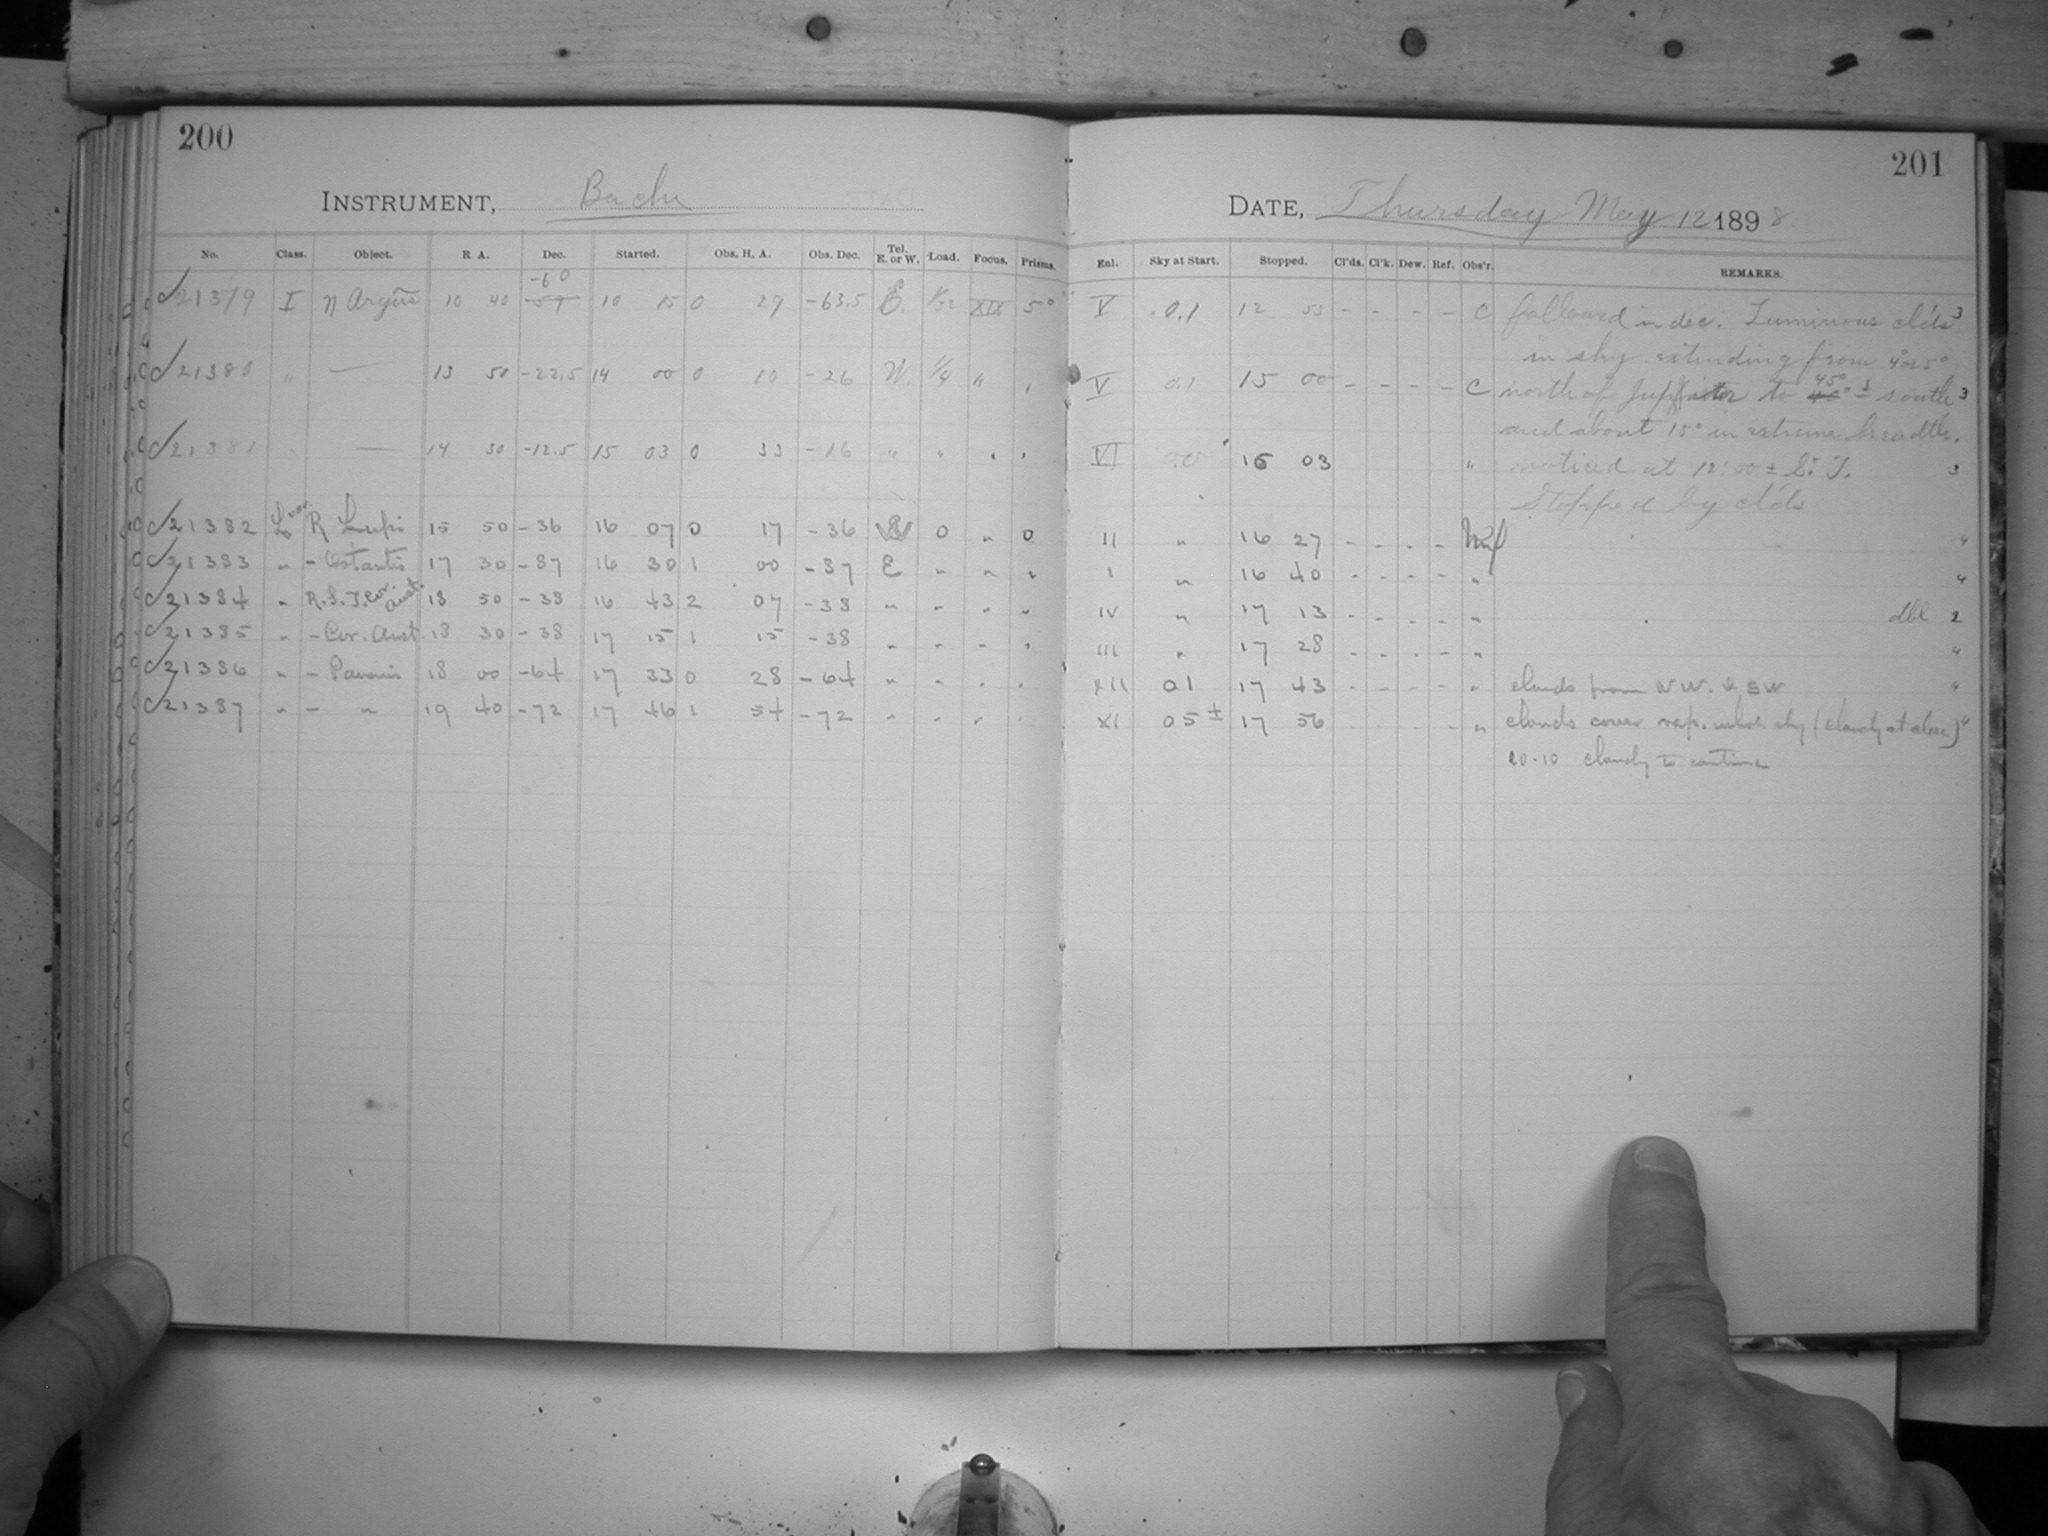 200
INSTRUMENT, Bache
No. Class. Object. R. A. Dec. Started. Obs. H. A. Obs. Dec. Tel. E. or W. Load. Focus. Prisms.
-60
21379 I η Argûs 10 40 -59 10 15 0 29 -63.5 E. 1/32 XIX 5°
21380 " — 13 50 -22.5 14 00 0 10 -26 W. 1/4 " "
21381 " — 14 30 -12.5 15 03 0 33 -16 " " " "
21382 R Lupi 15 50 -36 16 07 0 17 -36 0 " 0
21383 " - Octantis 17 30 -87 16 30 1 00 -87 E " " "
21384 " R.S.T. Cor. Aust. 18 50 -38 16 43 2 07 -38 " " " "
21385 " - Cor. Aust. 18 30 -38 17 15 1 15 -38 " " " "
21386 " - Pavonis 18 00 -64 17 33 0 28 -64 " " " "
21387 " - " 19 40 -72 17 46 1 54 -72 " " " "
201
DATE, Thursday May 12 1898.
Enl. Sky at Start. Stopped. Cl'ds. Cl'k. Dew. Ref. Obs'r. REMARKS.
V 0.1 12 53 - - - - C followed in dec. Luminous cl'ds 3
in sky extending from 4° or 5°
V 0.1 15 00 - - - - C north of Jupiter to 45° ± south 3
and about 15° in extreme breadth.
VI 0.0 16 03 " noticed at 12:00 ± S. T. 3
Stopped by cl'ds
II " 16 27 - - - - "
I " 16 40 - - - - " "
IV " 17 13 - - - - " dbl 2
III " 17 28 - - - - " "
XII 01 17 43 - - - - " clouds from N W. & S W "
XI 05 ± 17 56 - - - - " clouds cover whole sky (cloudy at close) "
20.10 cloudy to continue